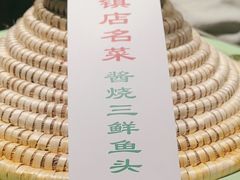 镇店名菜
酱烧三鲜鱼头